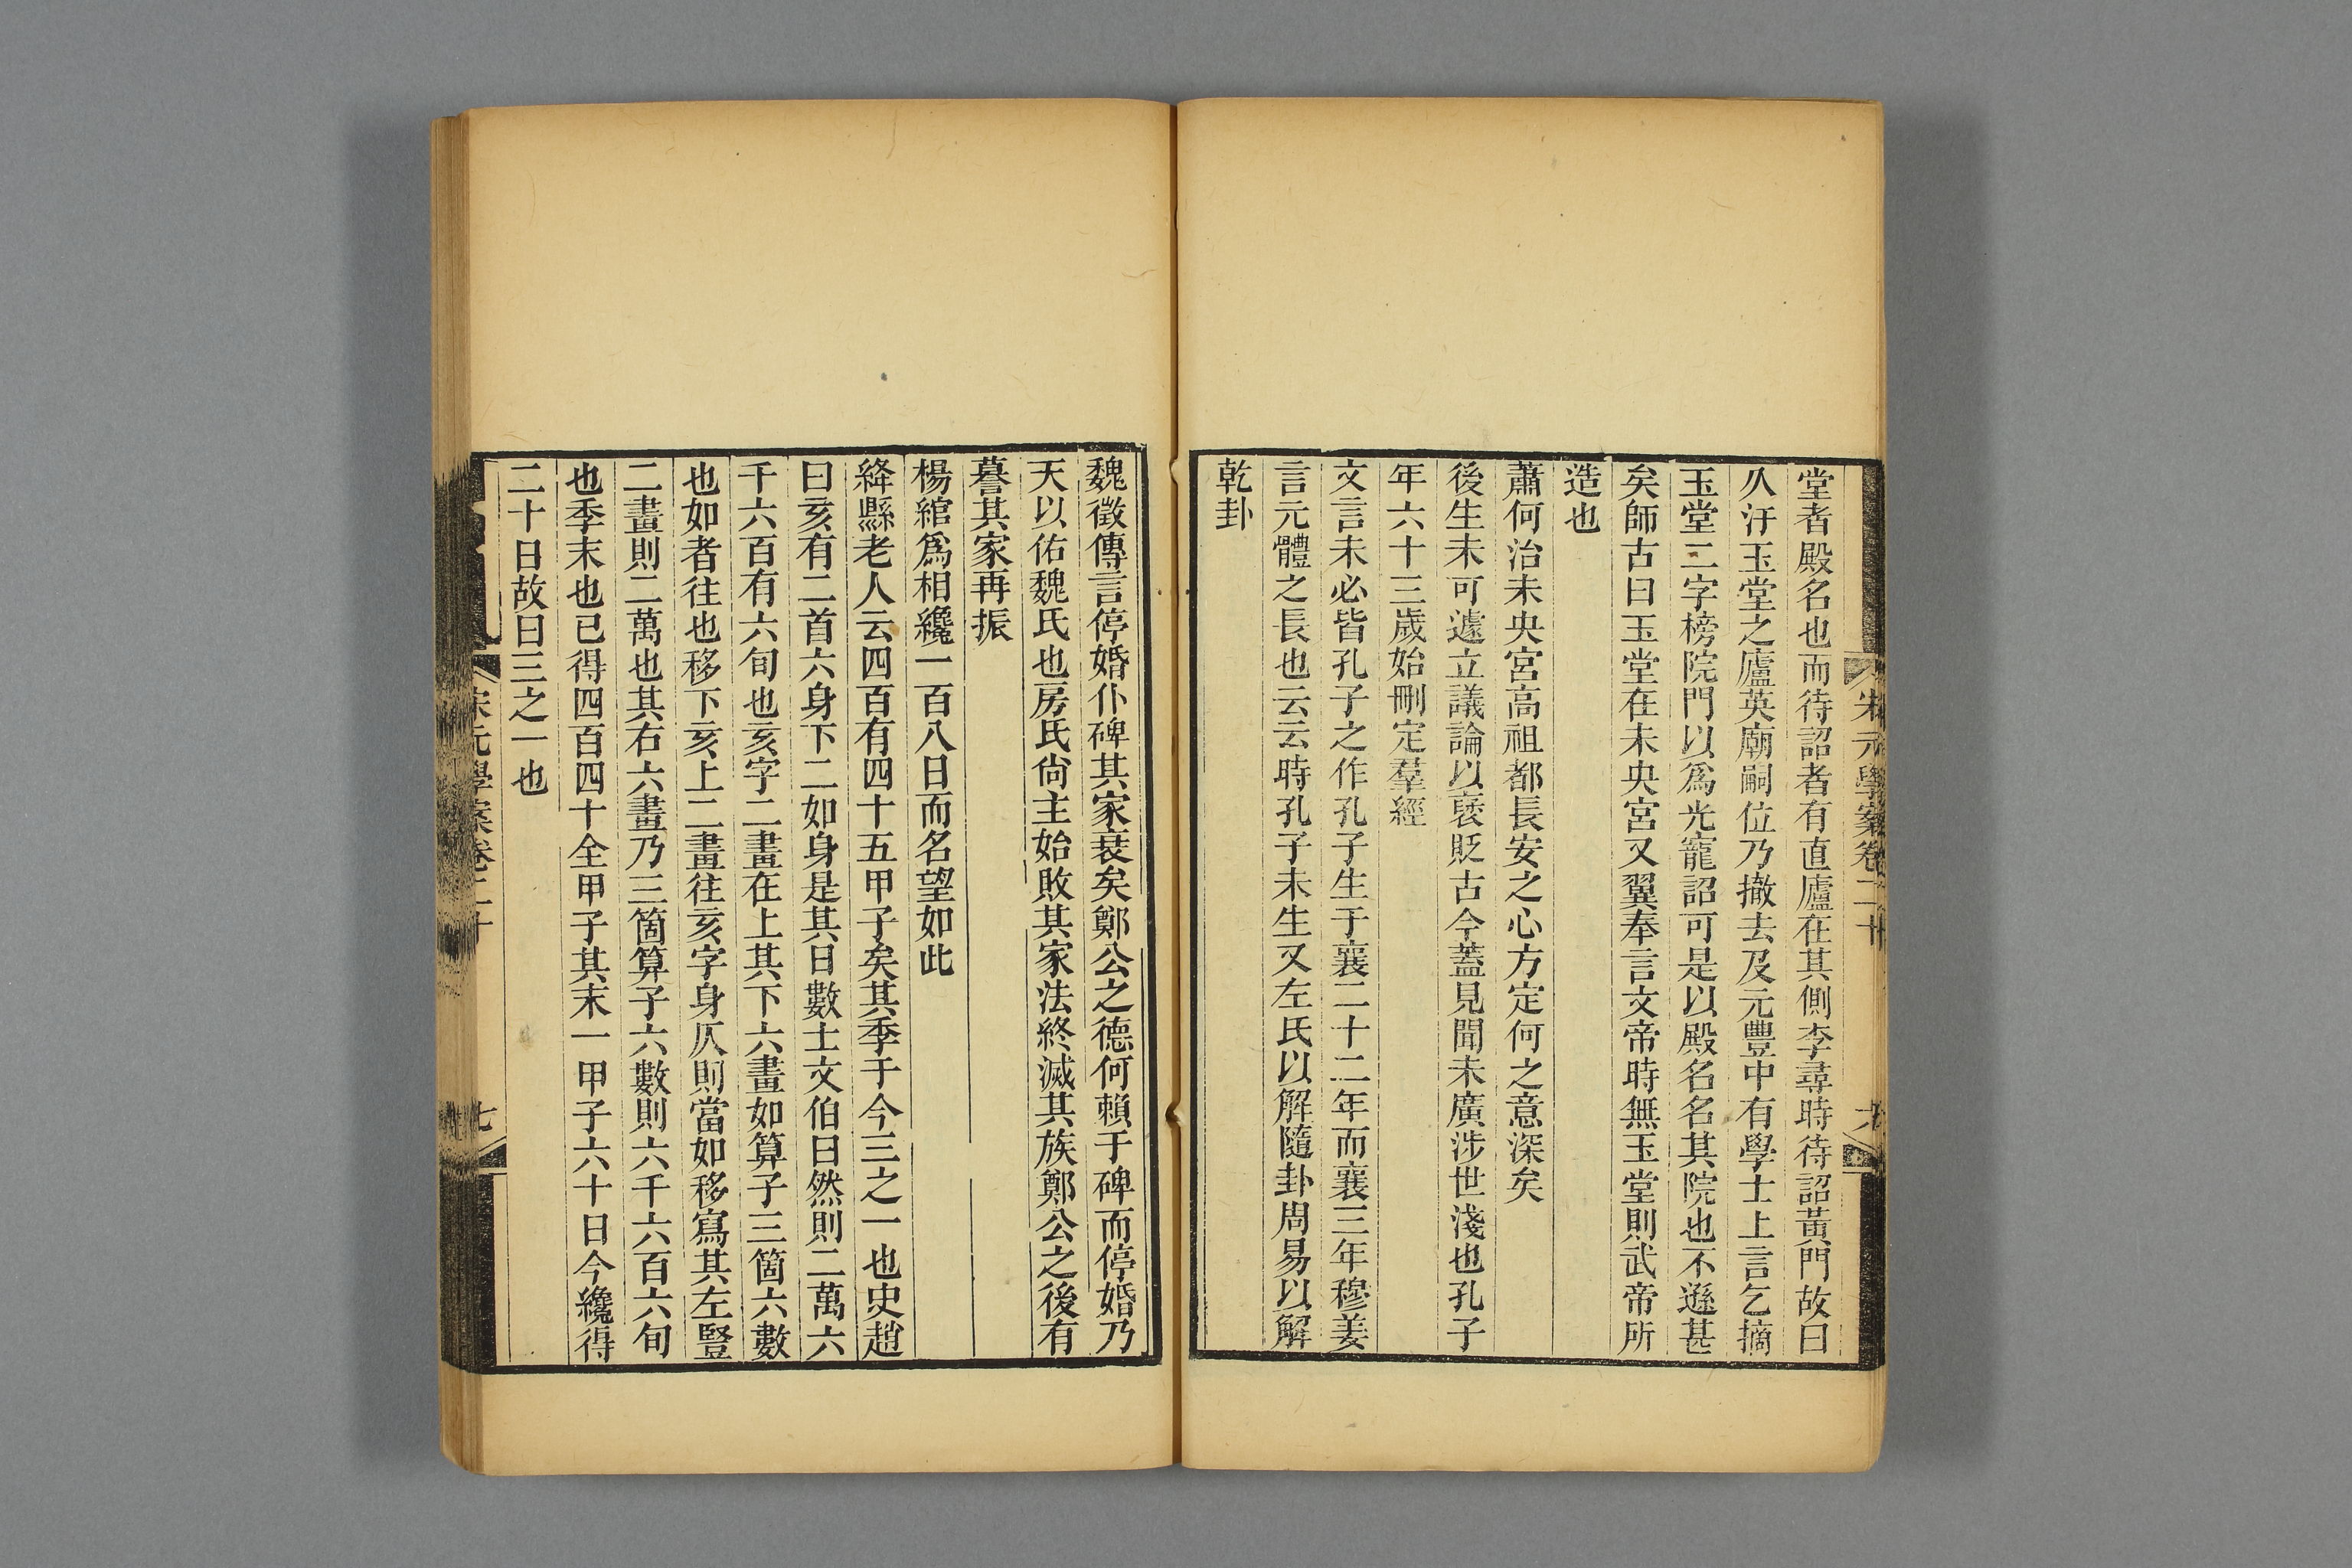 宋元學案卷二十
六
堂者殿名也而待詔者有直廬在其側李尋時待詔黃門故曰
久汙玉堂之廬英廟嗣位乃撤去及元豐中有學士上言乞摘
玉堂二字榜院門以爲光寵詔可是以殿名名其院也不遜甚
矣師古曰玉堂在未央宮又翼奉言文帝時無玉堂則武帝所
造也
蕭何治未央宮高祖都長安之心方定何之意深矣
後生未可遽立議論以褒貶古今蓋見聞未廣涉世淺也孔子
年六十三歲始刪定羣經
文言未必皆孔子之作孔子生于襄二十二年而襄三年穆姜
言元體之長也云云時孔子未生又左氏以解隨卦周易以解
乾卦
魏徵傳言停婚仆碑其家衰矣鄭公之德何賴于碑而停婚乃
天以佑魏氏也房氏尙主始敗其家法終滅其族鄭公之後有
謩其家再振
楊綰爲相纔一百八日而名望如此
絳縣老人云四百有四十五甲子矣其季于今三之一也史趙
曰亥有二首六身下二如身是其日數士文伯曰然則二萬六
千六百有六旬也亥字二畫在上其下六畫如算子三箇六數
也如者往也移下亥上二畫往亥字身仄則當如移寫其左豎
二畫則二萬也其右六畫乃三箇算子六數則六千六百六旬
也季末也已得四百四十全甲子其末一甲子六十日今纔得
二十日故曰三之一也
宋元學案卷二十
七